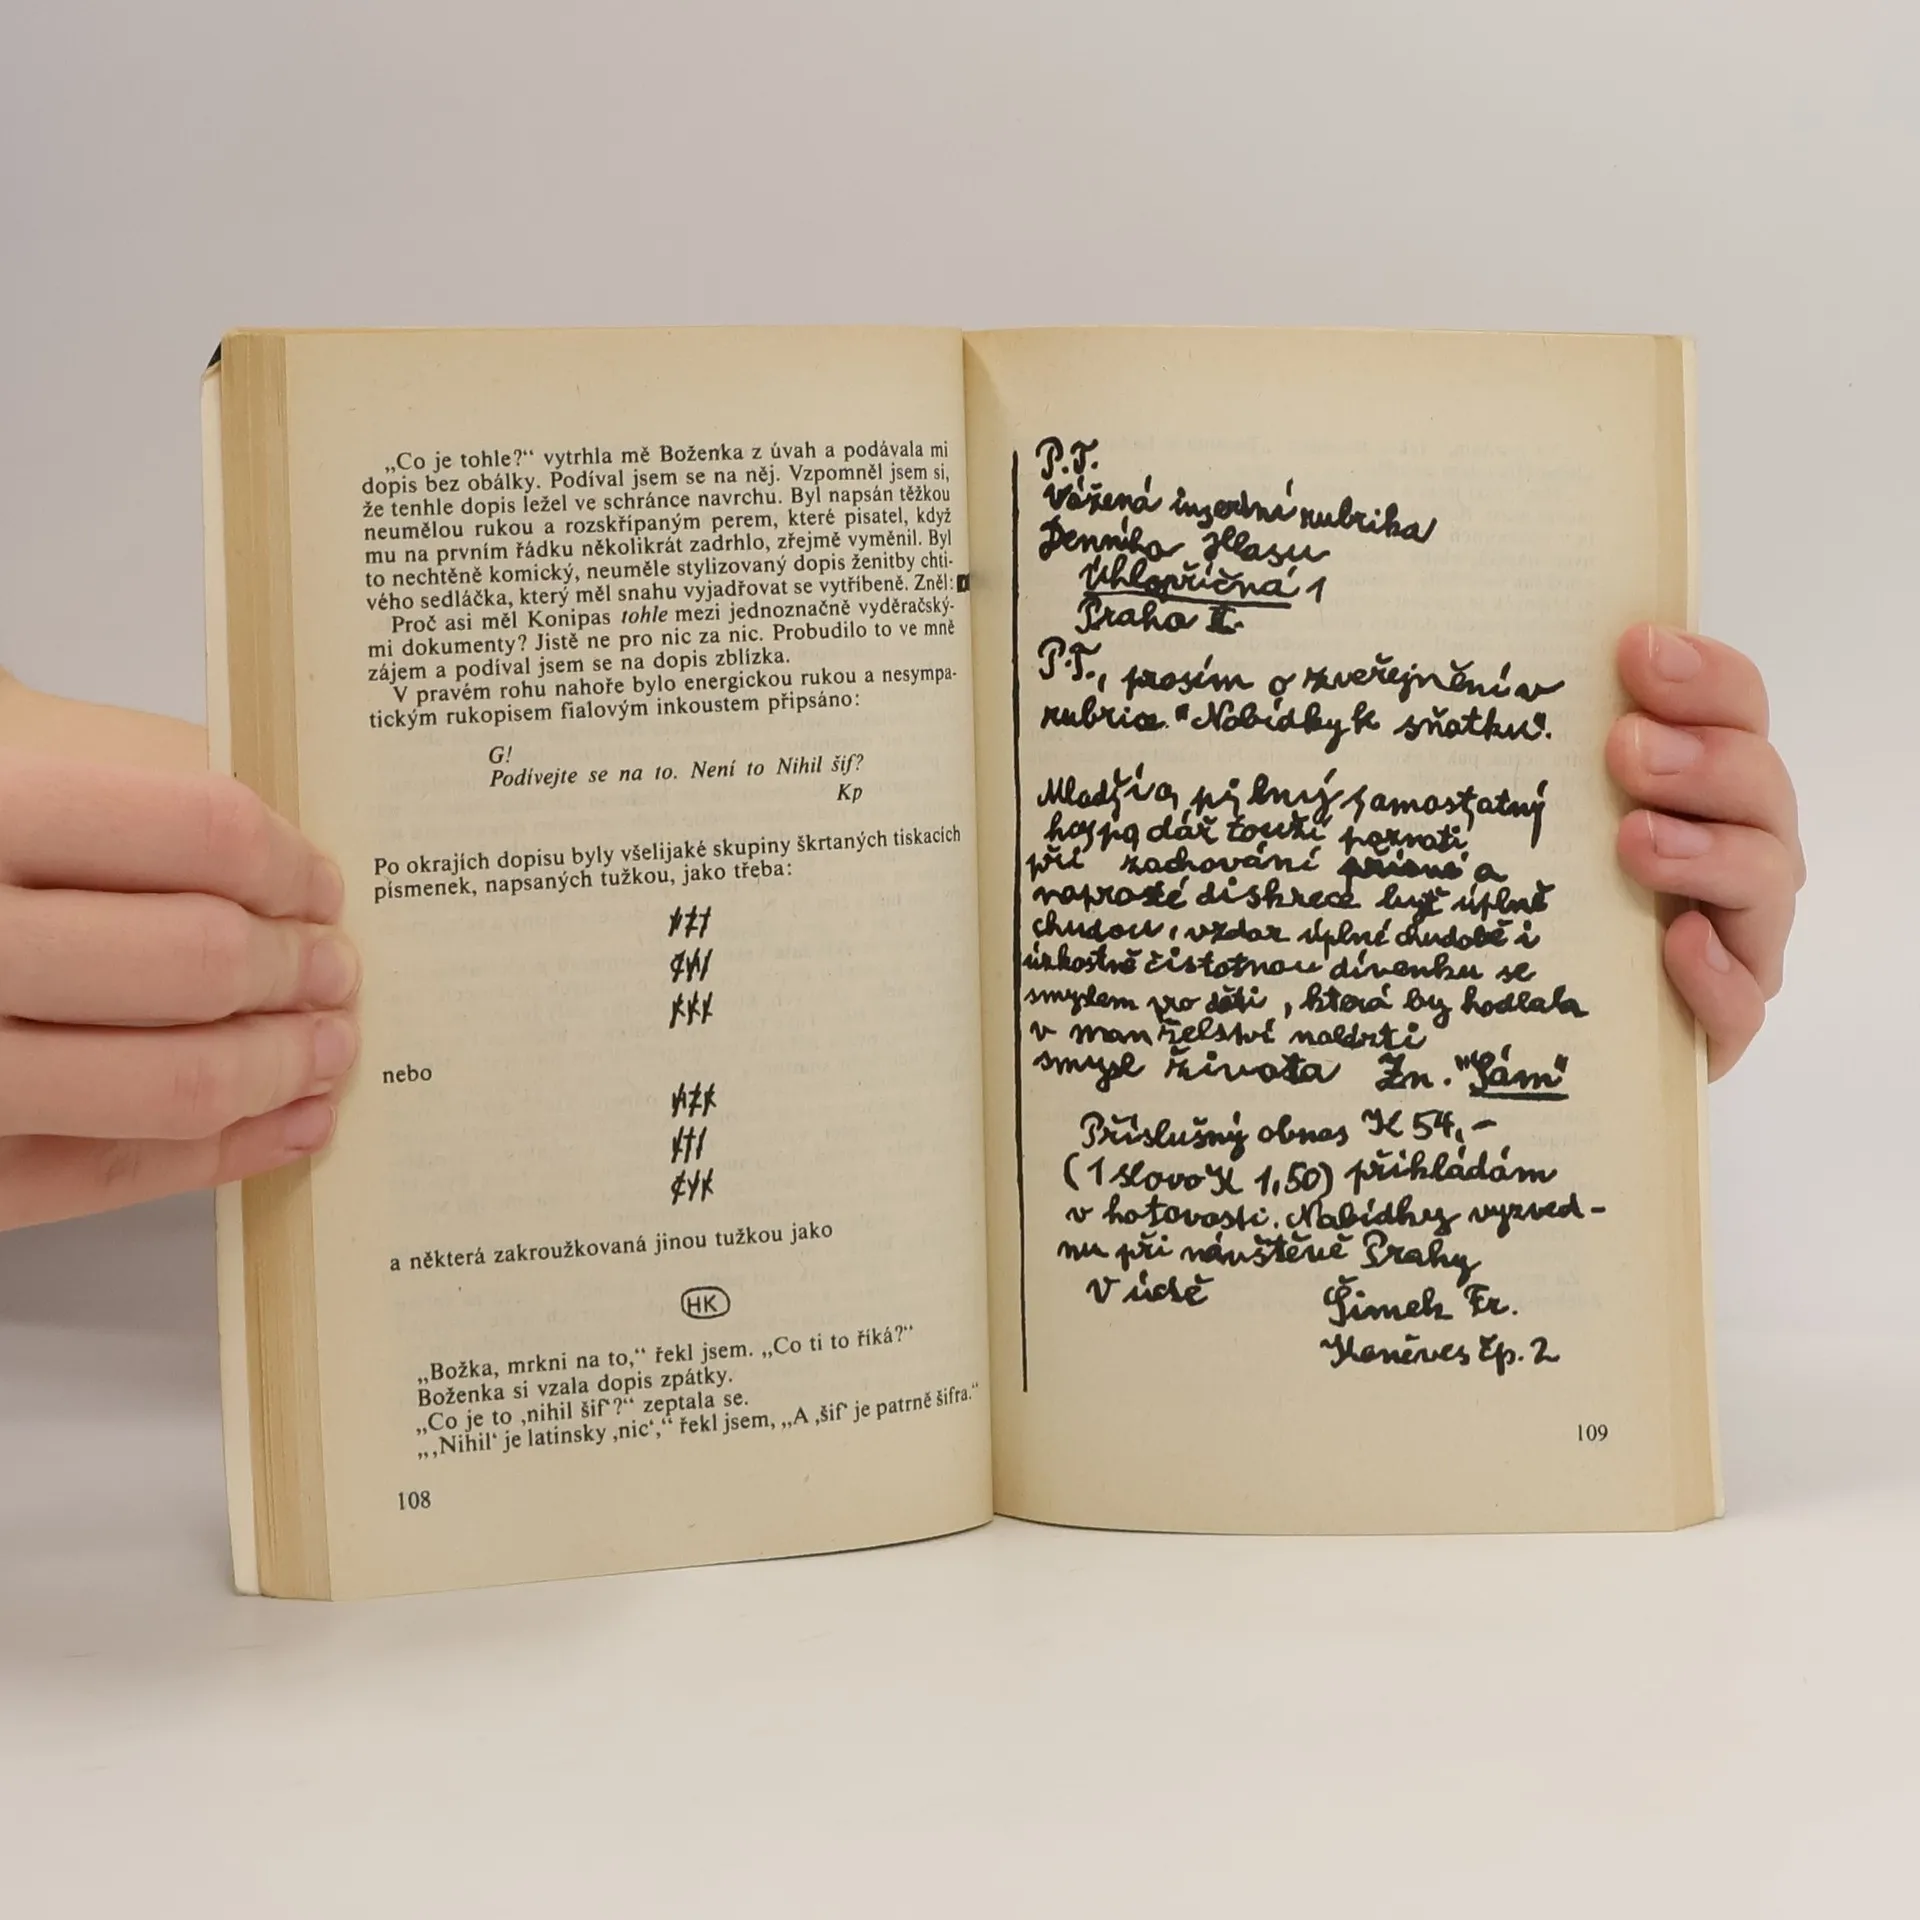 „Co je tohle?“ vytrhla mě Boženka z úvah a podávala mi
dopis bez obálky. Podíval jsem se na něj. Vzpomněl jsem si,
že tenhle dopis ležel ve schránce navrchu. Byl napsán těžkou
neumělou rukou a rozskřípaným perem, které pisatel, když
mu na prvním řádku několikrát zadrhlo, zřejmě vyměnil. Byl
to nechtěně komický, neuměle stylizovaný dopis ženitby chti-
vého sedláčka, který měl snahu vyjadřovat se vytříbeně. Zněl:
Proč asi měl Konipas tohle mezi jednoznačně vyděračský-
mi dokumenty? Jistě ne pro nic za nic. Probudilo to ve mně
zájem a podíval jsem se na dopis zblízka.
V pravém rohu nahoře bylo energickou rukou a nesympa-
tickým rukopisem fialovým inkoustem připsáno:
G!
Podívejte se na to. Není to Nihil šif?
Kp
Po okrajích dopisu byly všelijaké skupiny škrtaných tiskacích
písmenek, napsaných tužkou, jako třeba:
nebo
a některá zakroužkovaná jinou tužkou jako
HK
„Božka, mrkni na to,“ řekl jsem. „Co ti to říká?“
Boženka si vzala dopis zpátky.
„Co je to ‚nihil šif‘?“ zeptala se.
„‚Nihil‘ je latinsky ‚nic‘,“ řekl jsem, „A ‚šif‘ je patrně šifra.“
108
P.T.
Vážená inzertní rubrika
Denního Hlasu
Úhlopříčná 1
Praha II.
P.T., prosím o zveřejnění v
rubrice "Nabídky k sňatku".
Mladší a pilný samostatný
hospodář touží poznati
při zachování přísné a
naprosté diskrece byť úplně
chudou, vzdor úplné chudobě i
úzkostně čistotnou dívenku se
smyslem pro děti, která by hodlala
v manželství nalézti
smysl života Zn. "Sám"
Příslušný obnos K 54,-
(1 slovo K 1,50) přikládám
v hotovosti. Nabídky vyzved-
nu při návštěvě Prahy
V úctě
Šimek Fr.
Haněves čp. 2
109